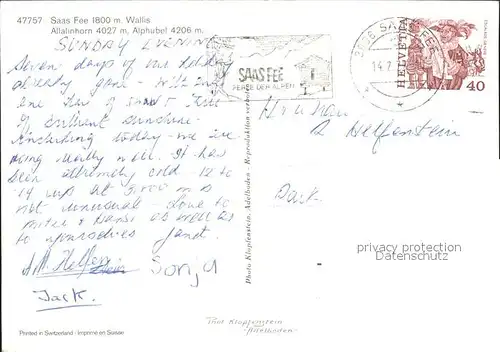 47757 Saas Fee 1800 m. Wallis
Allalinhorn 4027 m, Alphubel 4206 m.
SUNDAY EVENING
Seven days of our holiday
already gone - with only
one day of snow &
of brilliant sunshine
including today we are
doing really well. It has
been extremely cold - 12 to
14 up at 3000 m is
not unusual - Love to
Hans as well as
to yourselves Janet.
Sonja
Jack.
Printed in Switzerland - Imprimé en Suisse
SAAS FEE
PERLE DER ALPEN
3906 SAAS-FEE
14.7
HELVETIA
40
Photo Klopfenstein, Adelboden - Reproduktion verboten
Hr u Frau
R Helfenstein
privacy protection
Datenschutz
Phot Klopfenstein
Adelboden